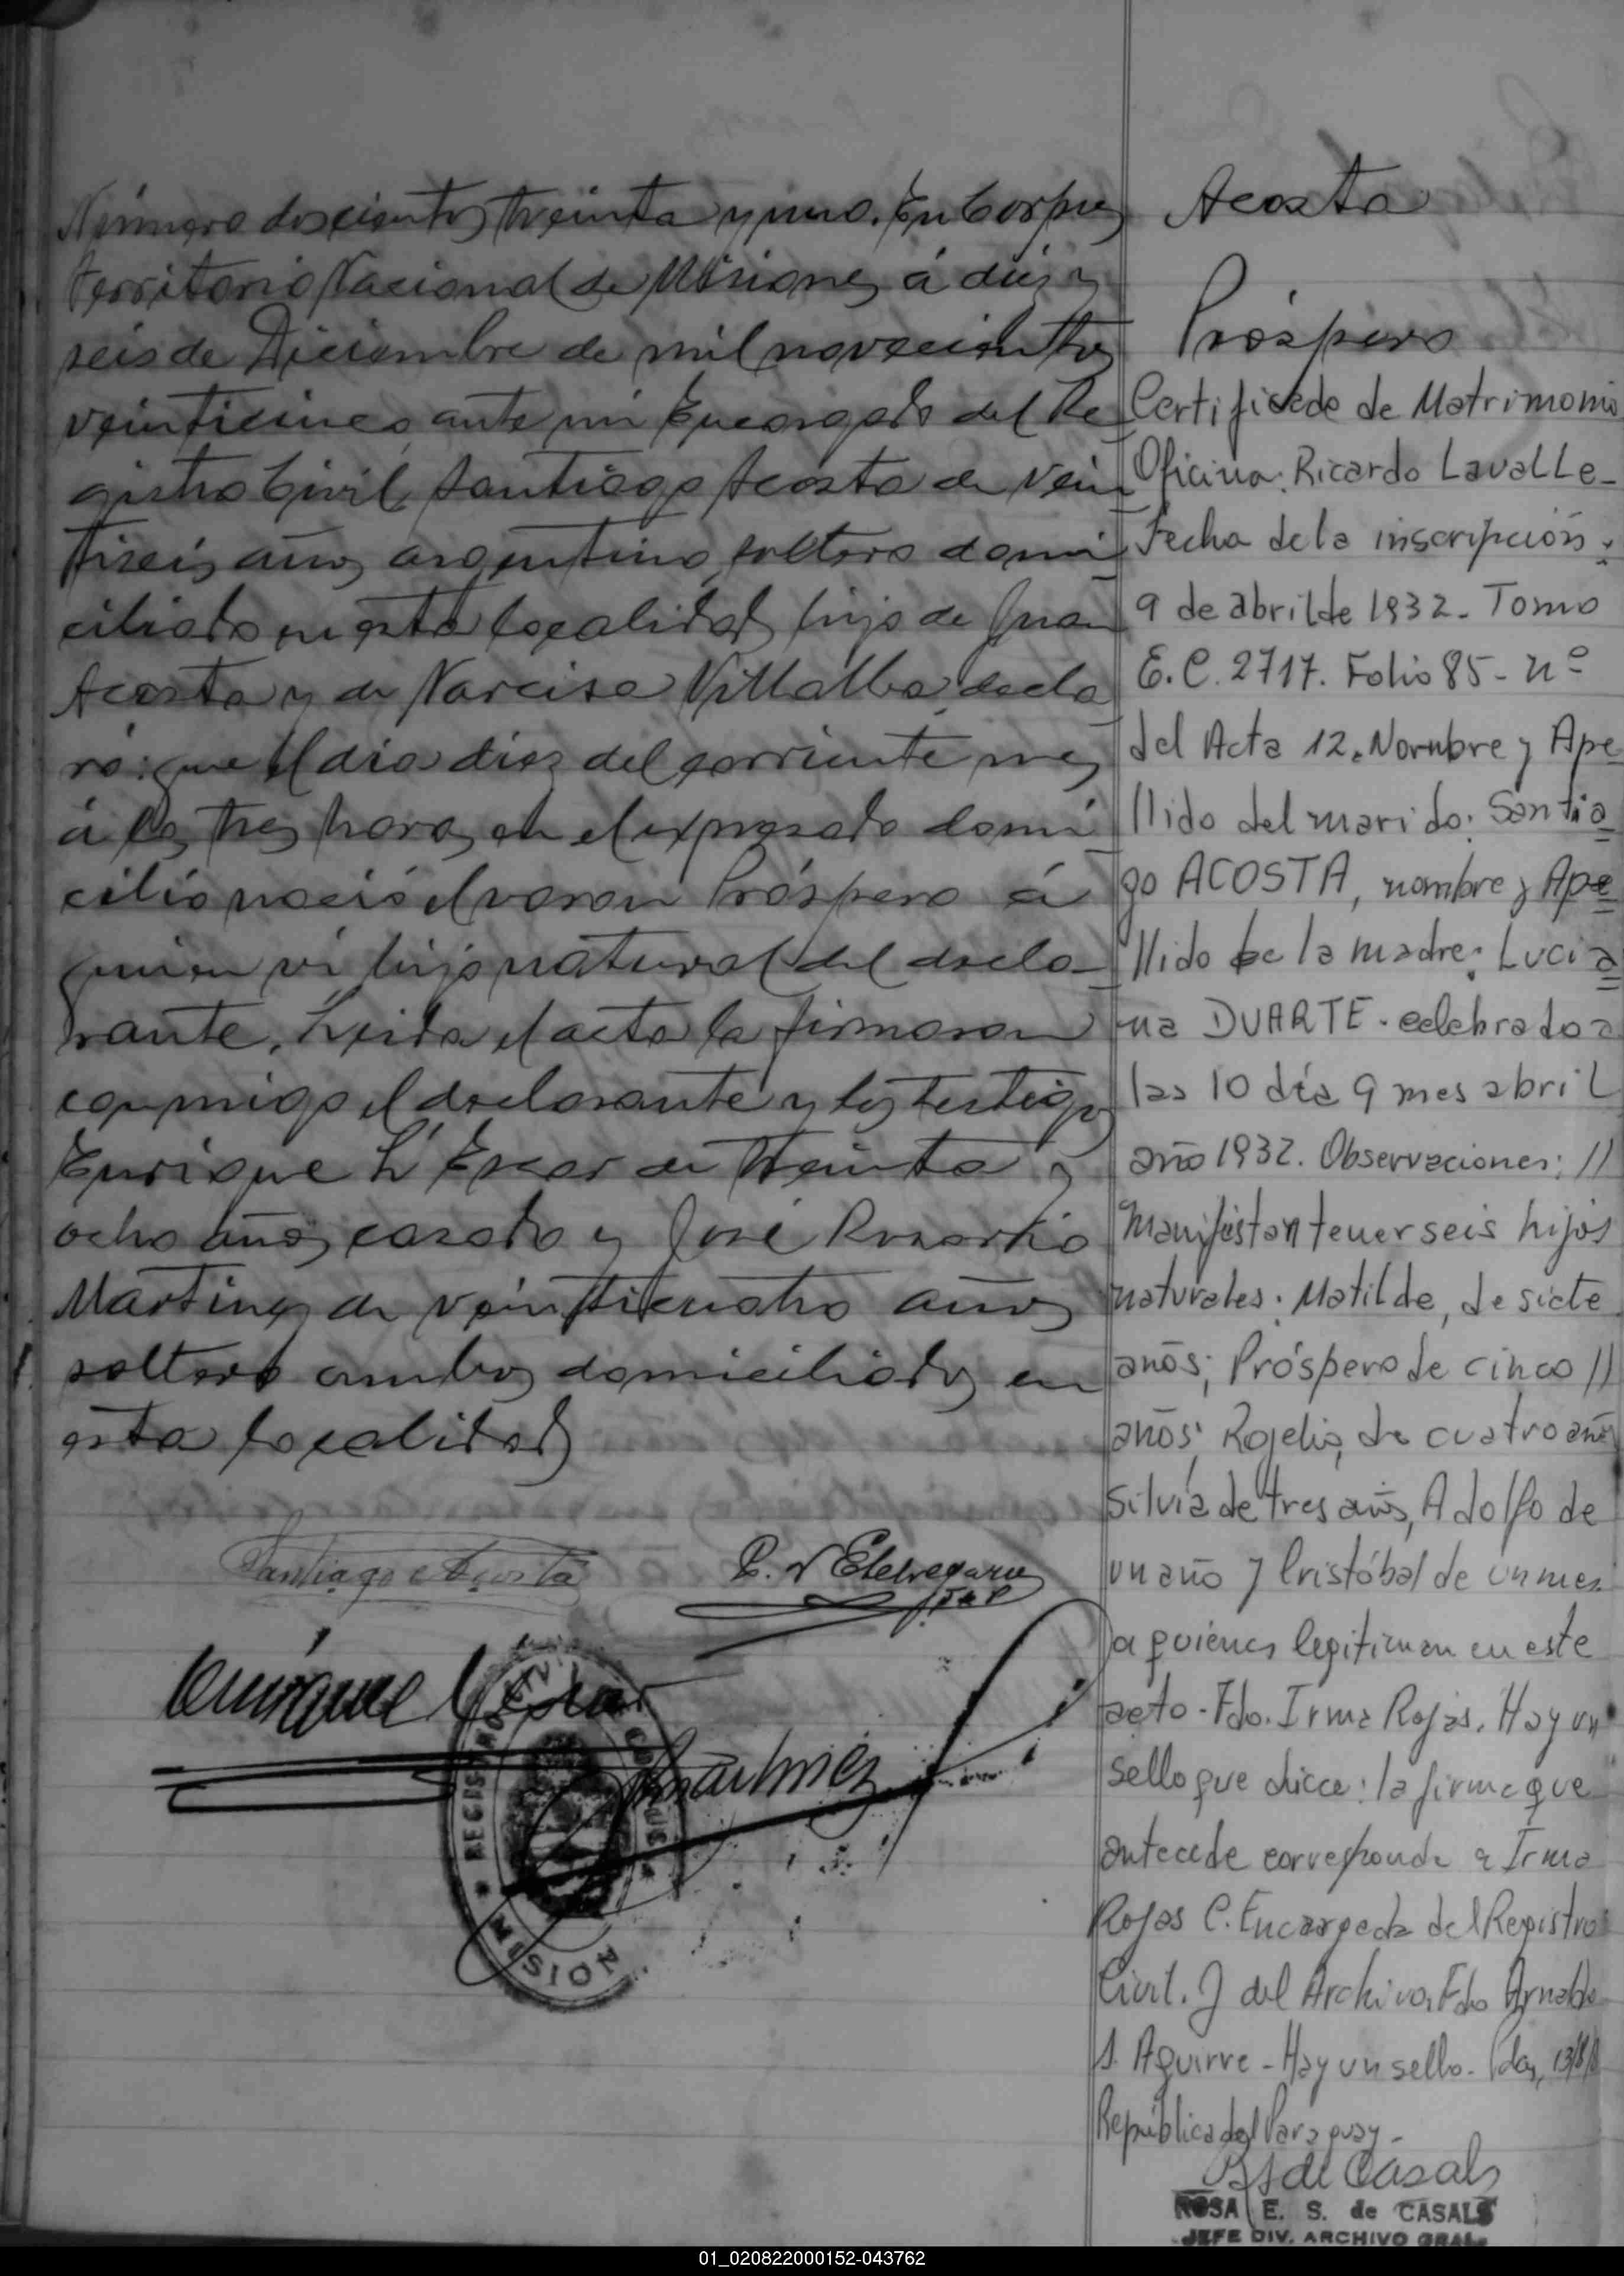 Número doscientos treinta y uno. En Corpus
territorio Nacional de Misiones á diez y
seis de Diciembre de mil novecientos
veinticinco, ante mi Encargado del Re
gistro Civil, Santiago Acosta de vein
tiseis años argentino, soltero domi
ciliado en esta localidad, hijo de Juan
Acosta y de Narcisa Villalba, decla
ró: que el dia diez del corriente mes
á las tres horas en el expresado domi
cilio nació el varon Próspero á
quien vi hijo natural del decla-
rante. Leida el acta la firmaron
conmigo el declarante y los testigos
Enrique L' Escar de treinta y
ocho años, casado y José Rosario
Martinez de veinticuatro años
soltero ambos domiciliados en
esta localidad
Santiago Acosta
P. N Etchegaray
J de P
Enrique
Martinez
REGISTRO CIVIL CORPUS
MISION
Acosta
Próspero
Certificado de Matrimonio
Oficina: Ricardo LavaLLe-
Fecha de la inscripción:
9 de abril de 1932. Tomo
E.C. 2717. Folio 85 - nº
del Acta 12. Nombre y Ape
llido del marido: Santia
go ACOSTA, nombre y Ape
llido de la madre: Lucia
na DUARTE. celebrado a
las 10 día 9 mes abril
año 1932. Observaciones: //
Manifiestan tener seis hijos
naturales: Matilde, de siete
años; Próspero de cinco //
años; Rojelia, de cuatro años
Silvia de tres años, Adolfo de
un año y Cristóbal de un mes
a quienes legitiman en este
acto - Fdo. Irma Rojas. Hay un
sello que dice: la firma que
antecede corresponde a Irma
Rojas C. Encargada del Registro
Civil. J del Archivo. Fdo Arnaldo
S. Aguirre - Hay un sello. Pdas, 13/8/
República del Paraguay -
de Casals
ROSA E. S. de CASALS
JEFE DIV. ARCHIVO GRAL.
01_020822000152-043762